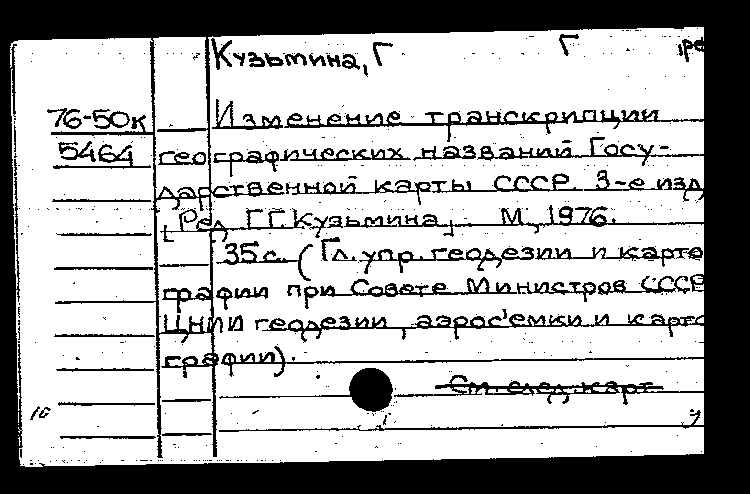 Кузьтина, Г Г ред
76-50к Изменение транскрипции
5464 географических названий Госу-
дарственной карты СССР. 3-е изд
[Ред. Г.Г. Кузьмина]. М., 1976.
35 с. (Гл. упр. геодезии и карто
графии при Совете Министров СССР
ЦНИИ геодезии, аэрос'емки и карто
графии).
См. след. карт
10